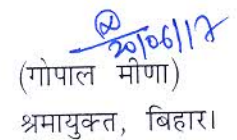 20/06/17
(गोपाल मीणा)
श्रमायुक्त, बिहार।